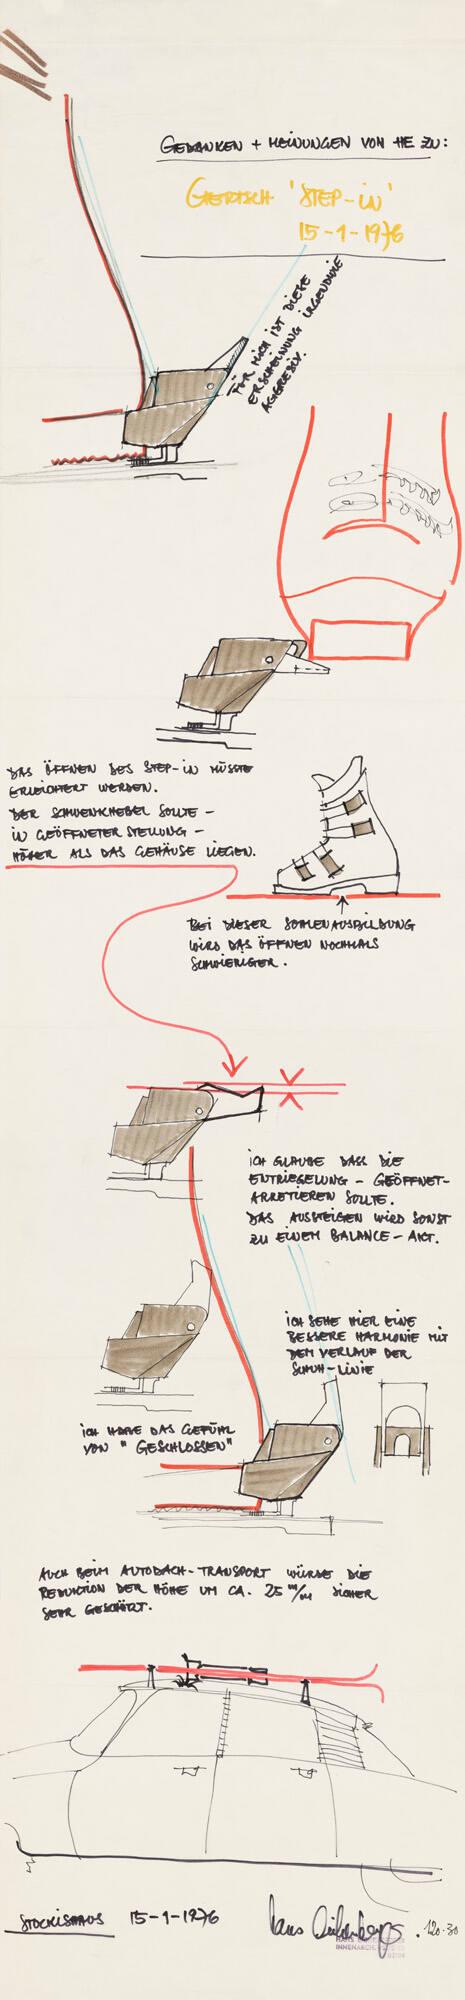 GEDANKEN + MEINUNGEN VON HE ZU:
GERTSCH 'STEP-IN'
15-1-1976
FÜR MICH IST DIESE
ERSCHEINUNG IRGENDWIE
AGGRESIV.
DAS ÖFFNEN DES STEP-IN MÜSSTE
ERLEICHTERT WERDEN.
DER SCHWENKHEBEL SOLLTE -
IN GEÖFFNETER STELLUNG -
HÖHER ALS DAS GEHÄUSE LIEGEN.
BEI DIESER SOHLENAUSBILDUNG
WIRD DAS ÖFFNEN NOCHMALS
SCHWIERIGER.
ICH GLAUBE DASS DIE
ENTRIEGELUNG - GEÖFFNET-
ARRETIEREN SOLLTE.
DAS AUSSTEIGEN WIRD SONST
ZU EINEM BALANCE-AKT.
ICH SEHE HIER EINE
BESSERE HARMONIE MIT
DEM VERLAUF DER
SCHUH-LINIE
ICH HABE DAS GEFÜHL
VON "GESCHLOSSEN"
AUCH BEIM AUTODACH-TRANSPORT WÜRDE DIE
REDUKTION DER HÖHE UM CA. 25 m/m SICHER
SEHR GESCHÄTZT.
15-1-1976
INNENARCH.